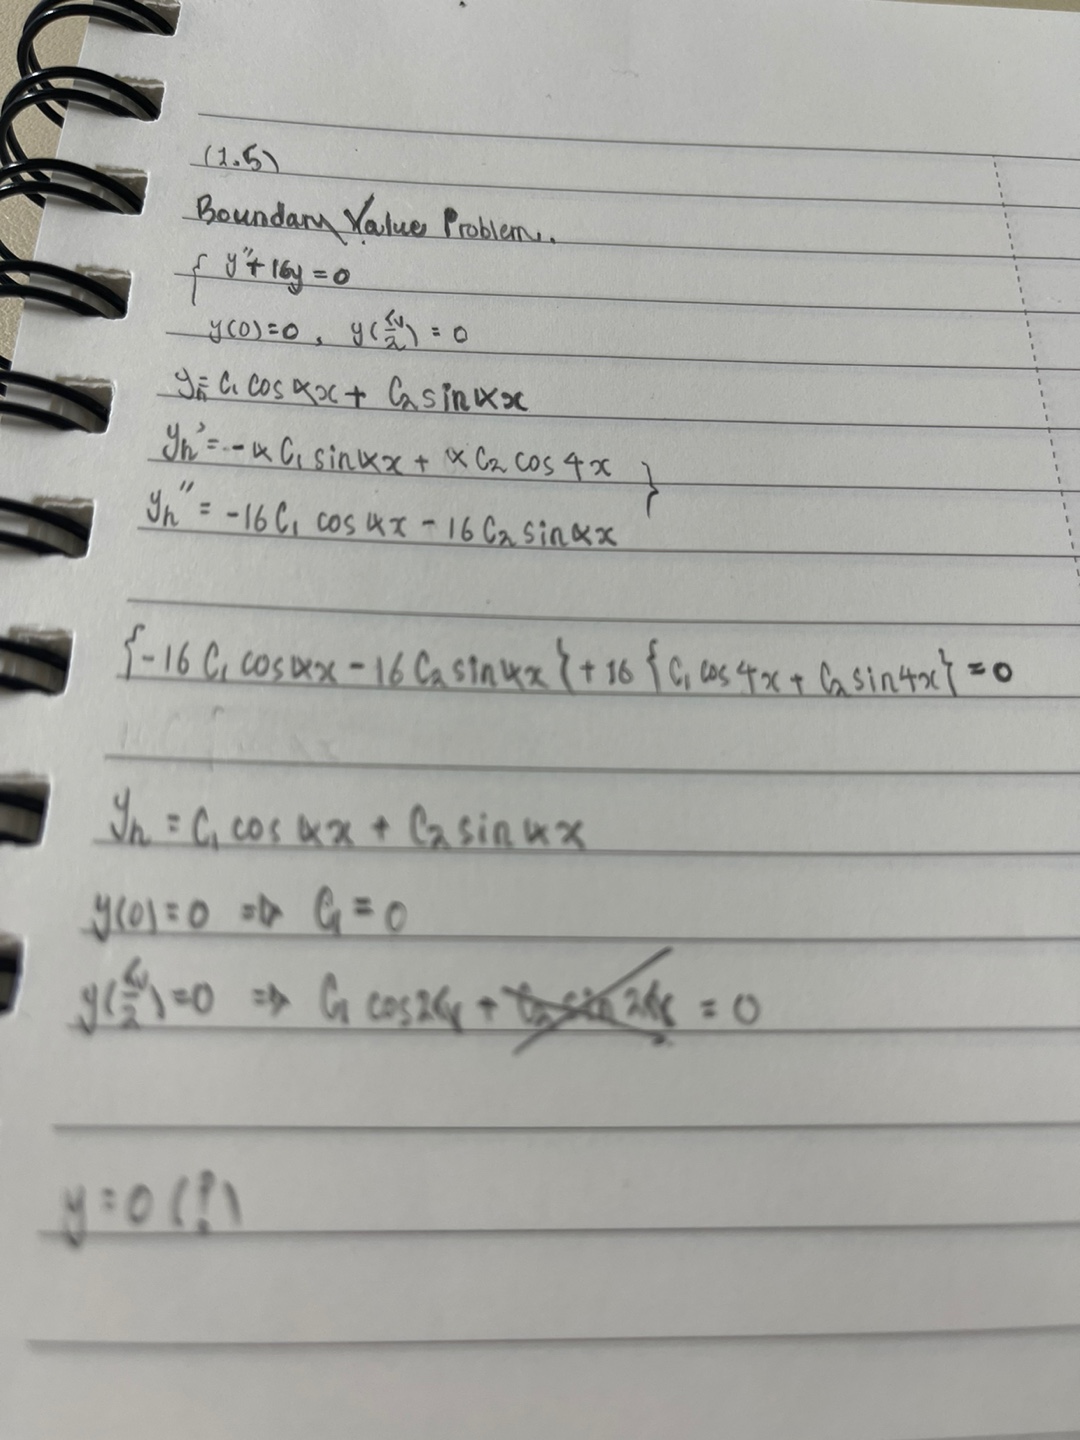 (1.5)
Boundary Value Problem.
{ y″ + 16y = 0
y(0)=0, y(π/2) = 0
yh = C₁ cos 4x + C₂ sin 4x
yh' = -4 C₁ sin 4x + 4 C₂ cos 4x }
yh″ = -16 C₁ cos 4x - 16 C₂ sin 4x
{-16 C₁ cos 4x - 16 C₂ sin 4x} + 16 {C₁ cos 4x + C₂ sin 4x} = 0
yh = C₁ cos 4x + C₂ sin 4x
y(0)=0 ⇒ C₁ = 0
y(π/2)=0 ⇒ C₁ cos 2π + C₂ sin 2π = 0
y = 0 (?)